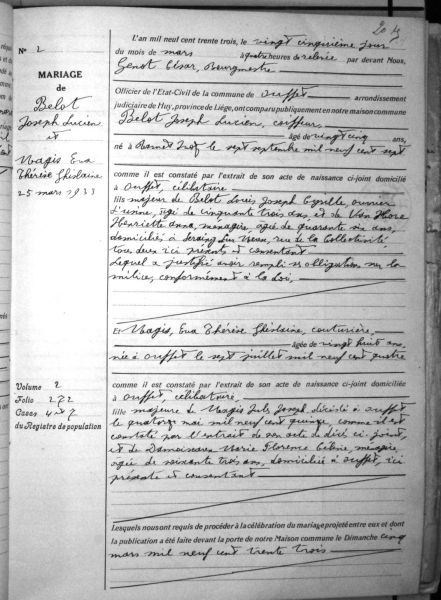 N° 2
MARIAGE
de
Belot
Joseph Lucien
et
Magis Eva
Thérèse Ghislaine
25 mars 1933
Volume 2
Folio 272
Cases 4 et 7
du Registre de population
L'an mil neuf cent trente trois, le vingt cinquième jour
du mois de mars à quatre heures de relevée par devant Nous,
Genot César, Bourgmestre
Officier de l'Etat-Civil de la commune de Ouffet arrondissement
judiciaire de Huy, province de Liège, ont comparu publiquement en notre maison commune
Belot Joseph Lucien, coiffeur,
âgé de vingt cinq ans,
né à le sept septembre mil neuf cent sept
comme il est constaté par l'extrait de son acte de naissance ci-joint domicilié
à Ouffet, célibataire,
fils majeur de Belot Louis Joseph Cyrille, ouvrier
d'usine, âgé de cinquante trois ans, et de Van Hove
Henriette Anna, ménagère, âgée de quarante six ans,
domiciliés à Seraing sur Meuse, rue de la Collectivité
tous deux ici présents et consentant
Lequel a justifié avoir rempli ses obligation sur la
milice, conformément à la loi,
Et Magis, Eva Thérèse Ghislaine, couturière,
âgée de vingt huit ans
née à Ouffet le sept juillet mil neuf cent quatre
comme il est constaté par l'extrait de son acte de naissance ci-joint domiciliée
à Ouffet, célibataire,
fille majeure de Magis Jules Joseph, décédé à Ouffet
le quatorze mai mil neuf cent quinze, comme il est
constaté par l'extrait de son acte de décès ci-joint,
et de Damoiseau Marie Florence ménagère,
âgée de soixante trois ans, domiciliée à Ouffet, ici
présente et consentant
Lesquels nous ont requis de procéder à la célébration du mariage projeté entre eux et dont
la publication a été faite devant la porte de notre Maison commune le Dimanche cinq
mars mil neuf cent trente trois